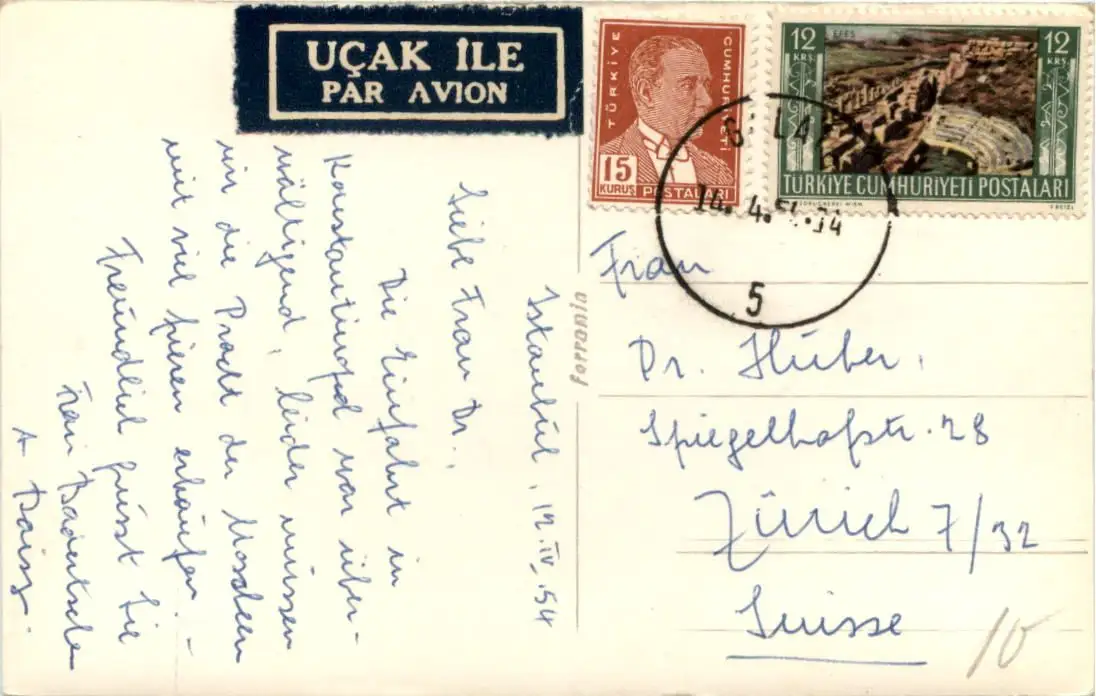 UÇAK İLE
PAR AVION
TÜRKİYE
CUMHURİYETİ
15
KURUŞ
POSTALARI
12
KRŞ.
EFES
12
KRŞ.
TÜRKİYE CUMHURİYETİ POSTALARI
14. 4. 54. 14
5
Ferrania
Istanbul, 12. IV. 54
Liebe Frau Dr.,
Die Einfahrt in
Konstantinopel war über-
wältigend, leider müssen
wir die Pracht der Moscheen
mit viel frieren erkaufen. -
Freundlich grüsst Sie
Frau
A
Frau
Dr. Huber,
Spiegelhofstr. 28
Zürich 7/32
Suisse
10